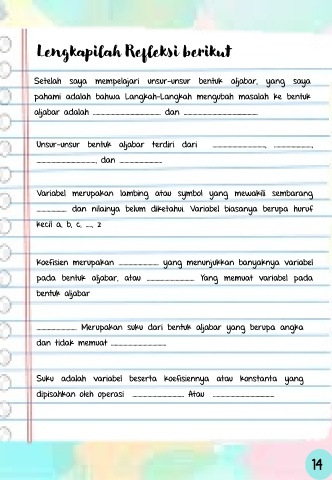 Lengkapilah Refleksi berikut
Setelah saya mempelajari unsur-unsur bentuk aljabar, yang saya
pahami adalah bahwa Langkah-Langkah mengubah masalah ke bentuk
aljabar adalah ______________ dan ______________
Unsur-unsur bentuk aljabar terdiri dari __________, ________,
____________, dan ________
Variabel merupakan lambing atau symbol yang mewakili sembarang
______ dan nilainya belum diketahui. Variabel biasanya berupa huruf
kecil a, b, c, ..., z
Koefisien merupakan ________ yang menunjukkan banyaknya variabel
pada bentuk aljabar, atau __________ Yang memuat variabel pada
bentuk aljabar
________ Merupakan suku dari bentuk aljabar yang berupa angka
dan tidak memuat ___________
Suku adalah variabel beserta koefisiennya atau konstanta yang
dipisahkan oleh operasi __________ Atau ____________
14